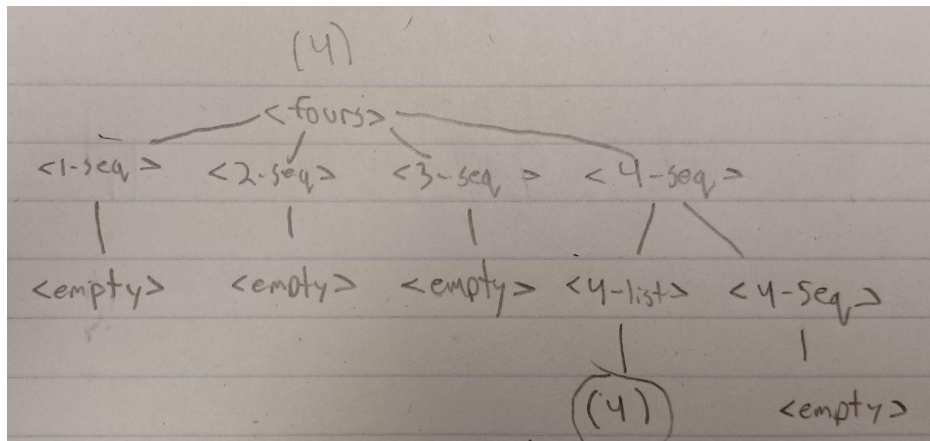 (4)
<fours>
<1-seq> <2-seq> <3-seq> <4-seq>
<empty> <empty> <empty> <4-list> <4-seq>
(4) <empty>